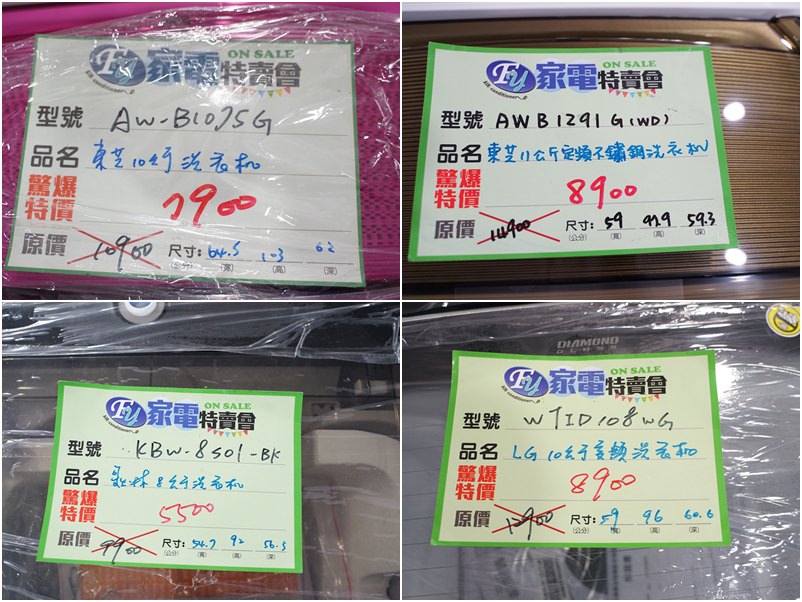 ON SALE
Fu 家電特賣會
air conditioner
型號 AW-B1075G
品名 東芝10公斤洗衣机
驚爆特價 7900
原價 10900 尺寸: 64.5 103 62
(公分) (寬) (高) (深)
ON SALE
Fu 家電特賣會
air conditioner
型號 AWB1291G(WD)
品名 東芝11公斤定頻不鏽鋼洗衣机
驚爆特價 8900
原價 14900 尺寸: 59 97.9 59.3
(公分) (寬) (高) (深)
ON SALE
Fu 家電特賣會
air conditioner
型號 KBW-8S01-BK
品名 歌林8公斤洗衣机
驚爆特價 5500
原價 7900 尺寸: 54.7 92 56.3
(公分) (寬) (高) (深)
DIAMOND
GLASS
ON SALE
Fu 家電特賣會
air conditioner
型號 WTID108WG
品名 LG 10公斤變頻洗衣机
驚爆特價 8900
原價 12900 尺寸: 59 96 60.6
(公分) (寬) (高) (深)